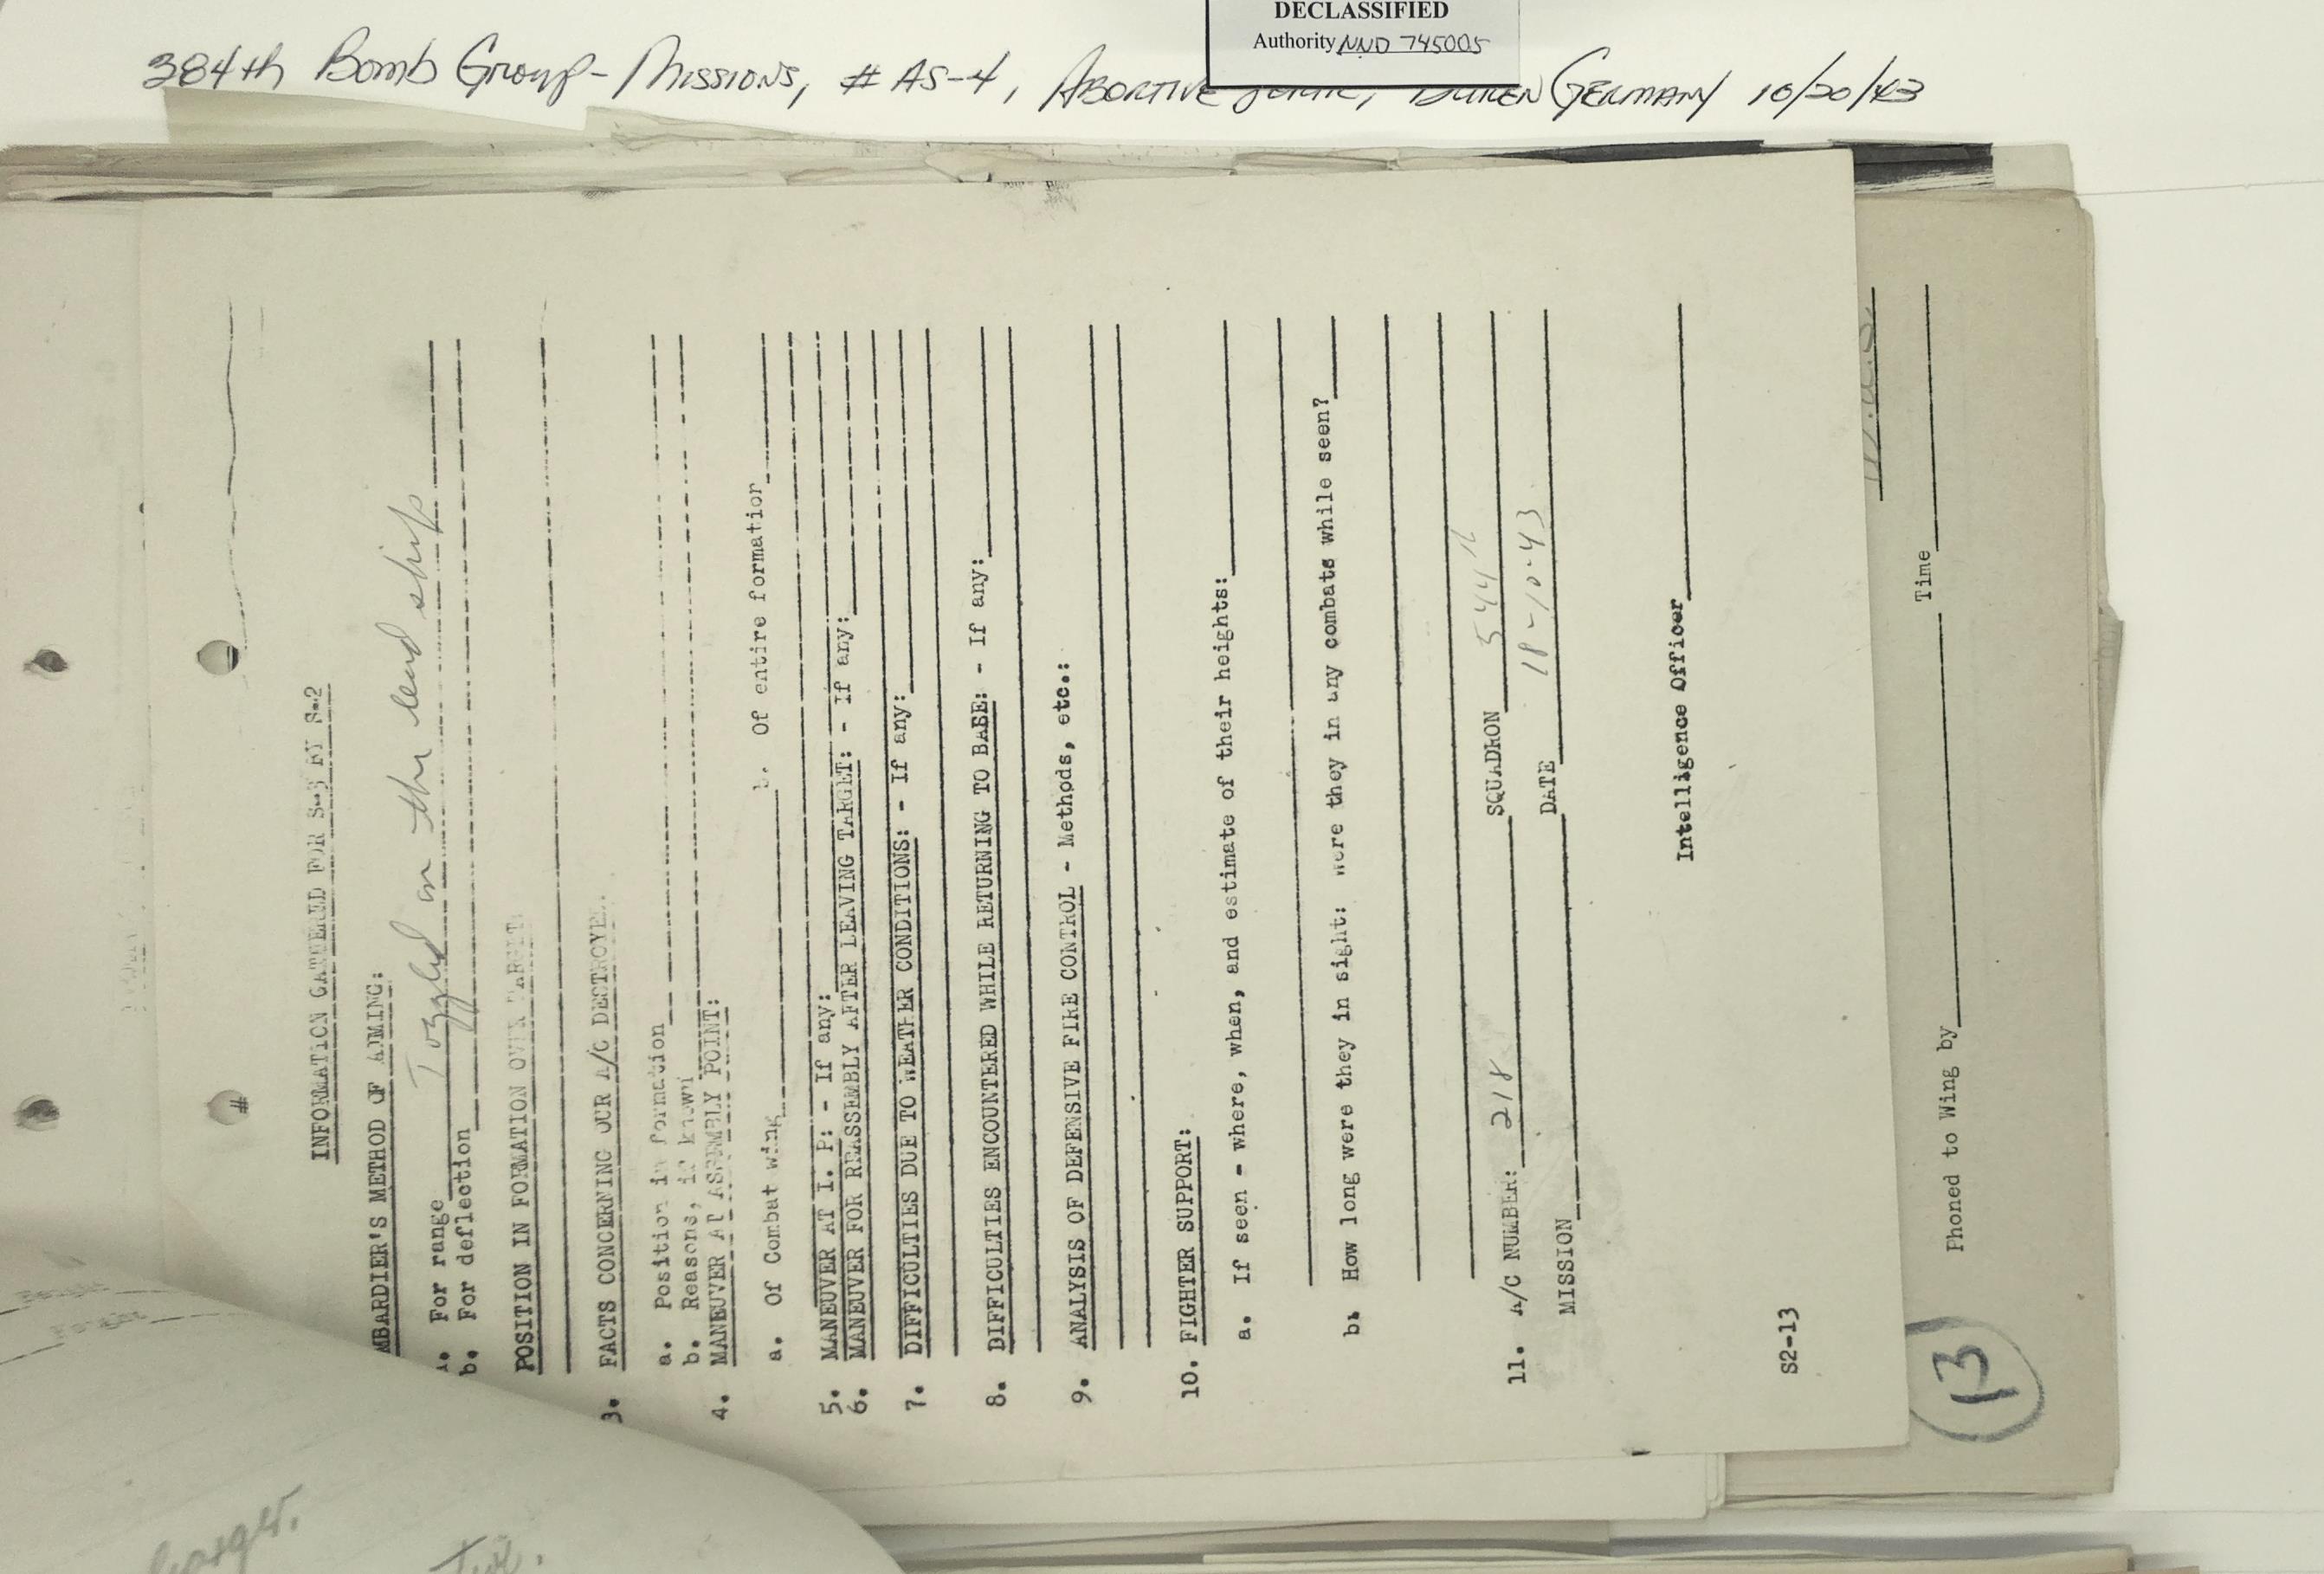 DECLASSIFIED
Authority NND 745005
384th Bomb Group - Missions, # AS-4, Abortive Germany 10/20/43
INFORMATION GATHERED FOR S-3 BY S-2
MBARDIER'S METHOD OF AIMING:
a. For range Toggled on the lead ship
b. For deflection
POSITION IN FORMATION OVER TARGET:
3. FACTS CONCERNING OUR A/C DESTROYED.
a. Position in formation
b. Reasons, if known
4. MANEUVER AT ASSEMBLY POINT:
a. Of Combat wing b. Of entire formation
5. MANEUVER AT I. P: - If any:
6. MANEUVER FOR REASSEMBLY AFTER LEAVING TARGET: - If any:
7. DIFFICULTIES DUE TO WEATHER CONDITIONS: - If any:
8. DIFFICULTIES ENCOUNTERED WHILE RETURNING TO BASE: - If any:
9. ANALYSIS OF DEFENSIVE FIRE CONTROL - Methods, etc.:
10. FIGHTER SUPPORT:
a. If seen - where, when, and estimate of their heights:
b. How long were they in sight: were they in any combats while seen?
11. A/C NUMBER: 218 SQUADRON 544th
MISSION DATE 18-10-43
Intelligence Officer
S2-13
Phoned to Wing by Time
13